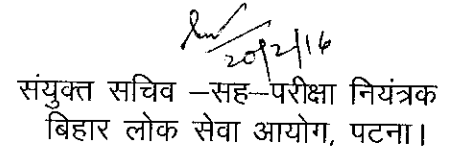 20/2/16
संयुक्त सचिव –सह–परीक्षा नियंत्रक
बिहार लोक सेवा आयोग, पटना।